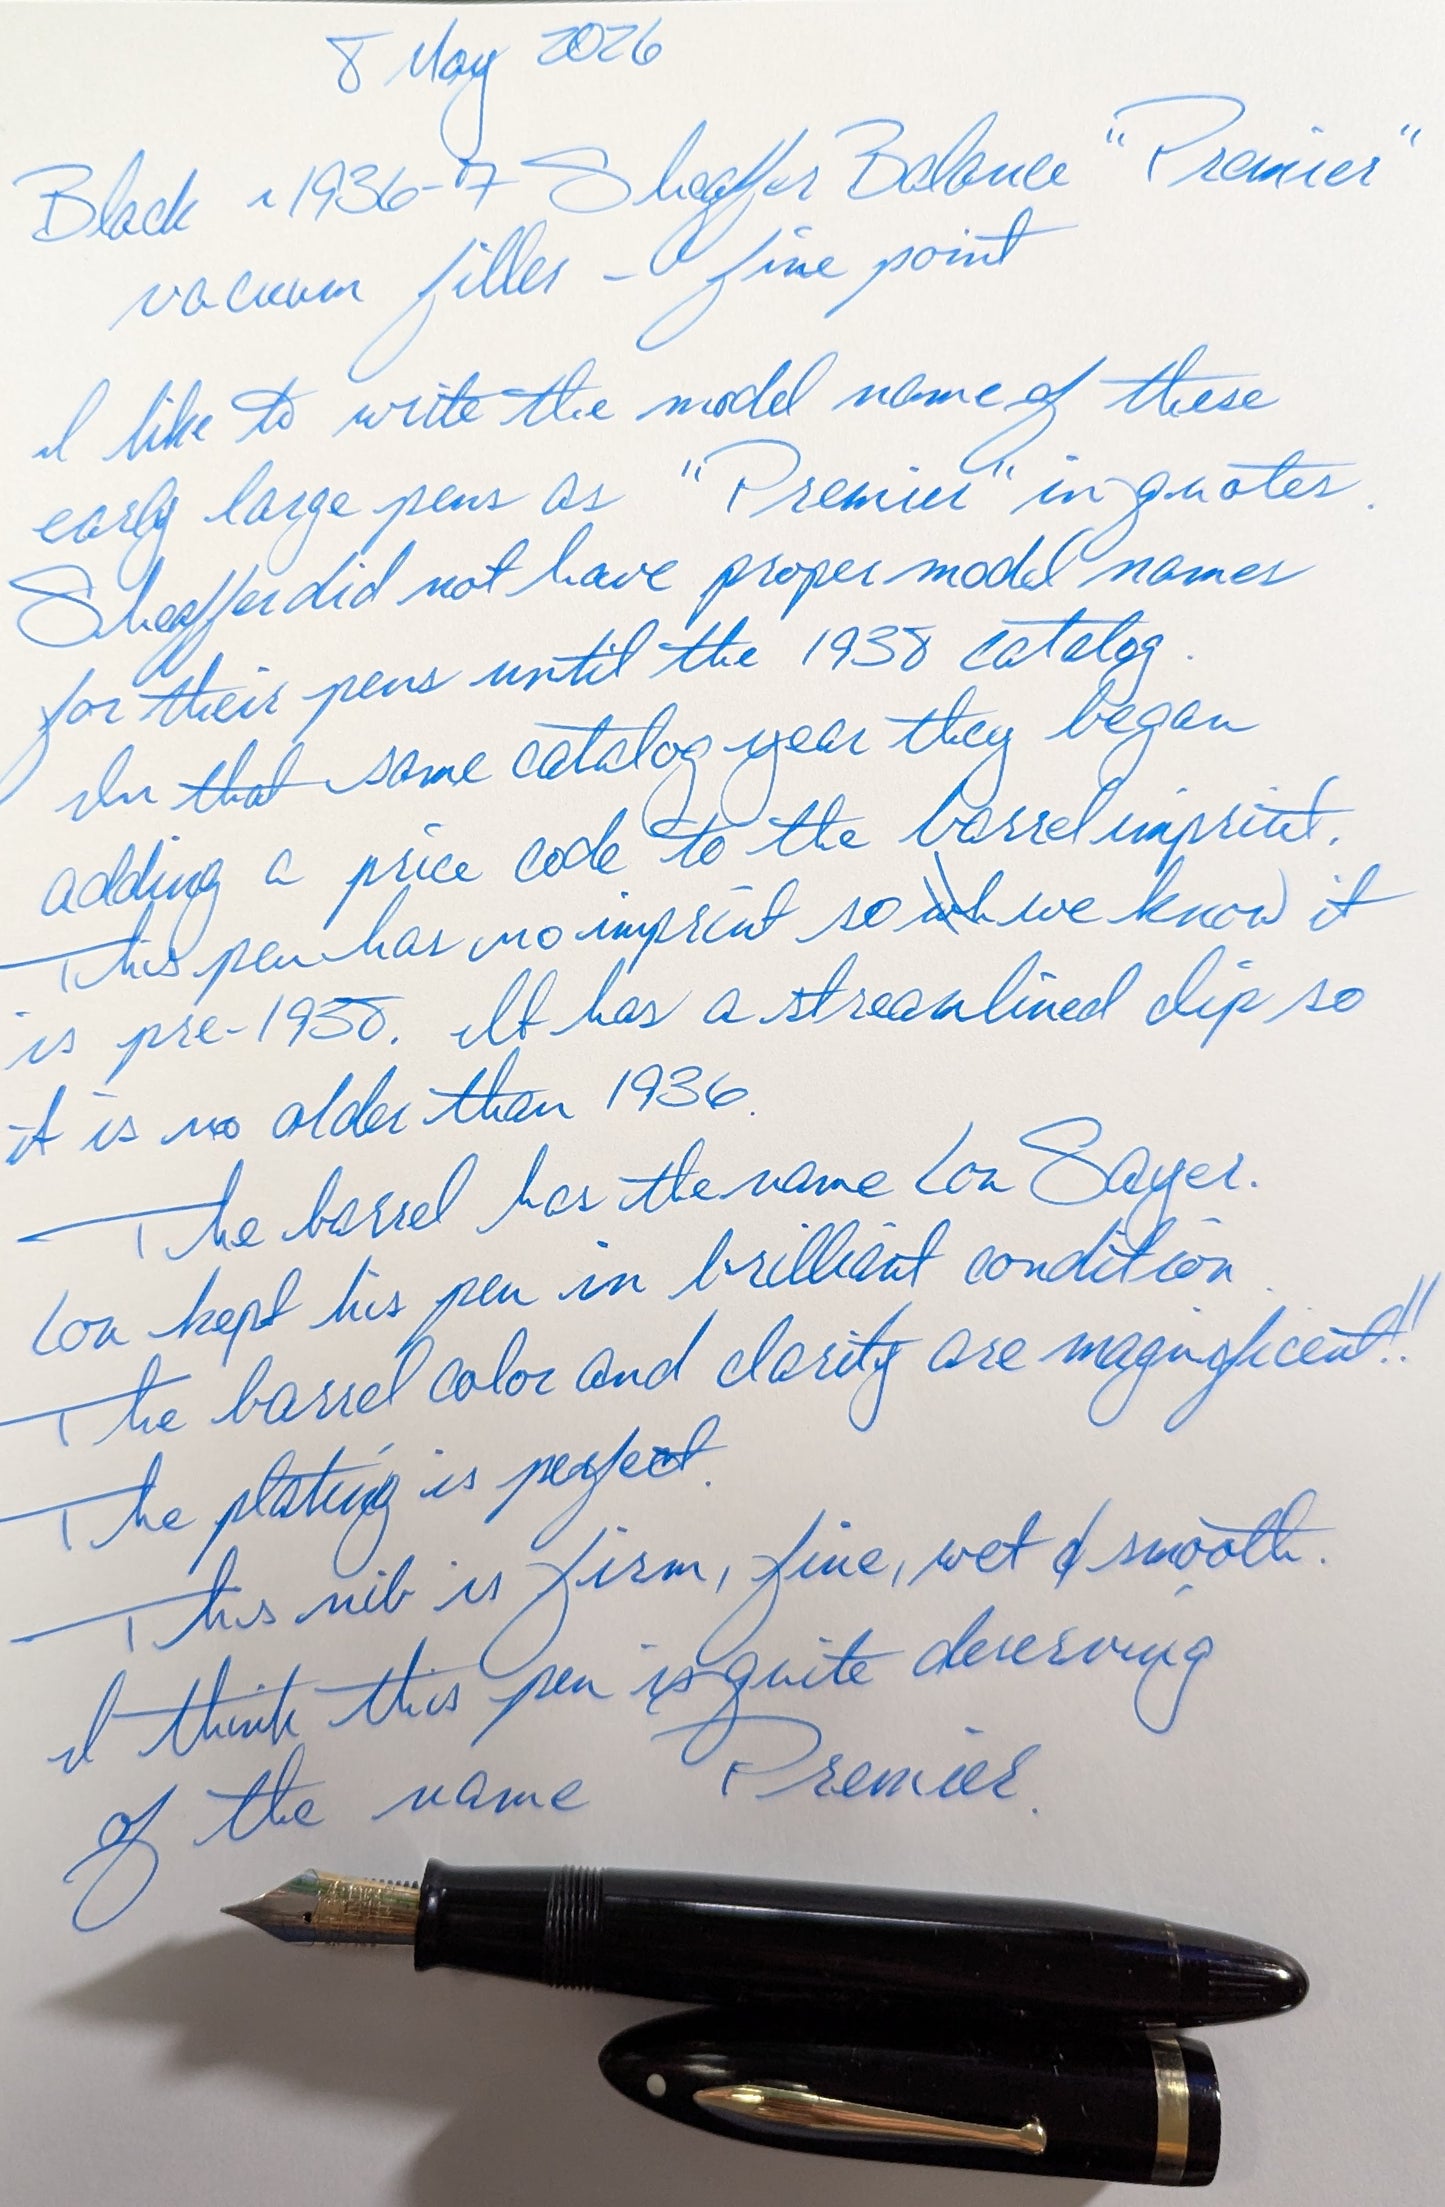 8 May 2026
Black ~1936-7 Sheaffer Balance "Premier"
vacuum filler - fine point
I like to write the model name of these
early large pens as "Premier" in quotes.
Sheaffer did not have proper model names
for their pens until the 1938 catalog.
In that same catalog year they began
adding a price code to the barrel imprint.
This pen has no imprint so wh we know it
is pre-1938. It has a streamlined clip so
it is no older than 1936.
The barrel has the name Lou Sayer.
Lou kept his pen in brilliant condition.
The barrel color and clarity are magnificent!!
The plating is perfect.
This nib is firm, fine, wet & smooth.
I think this pen is quite deserving
of the name Premier.